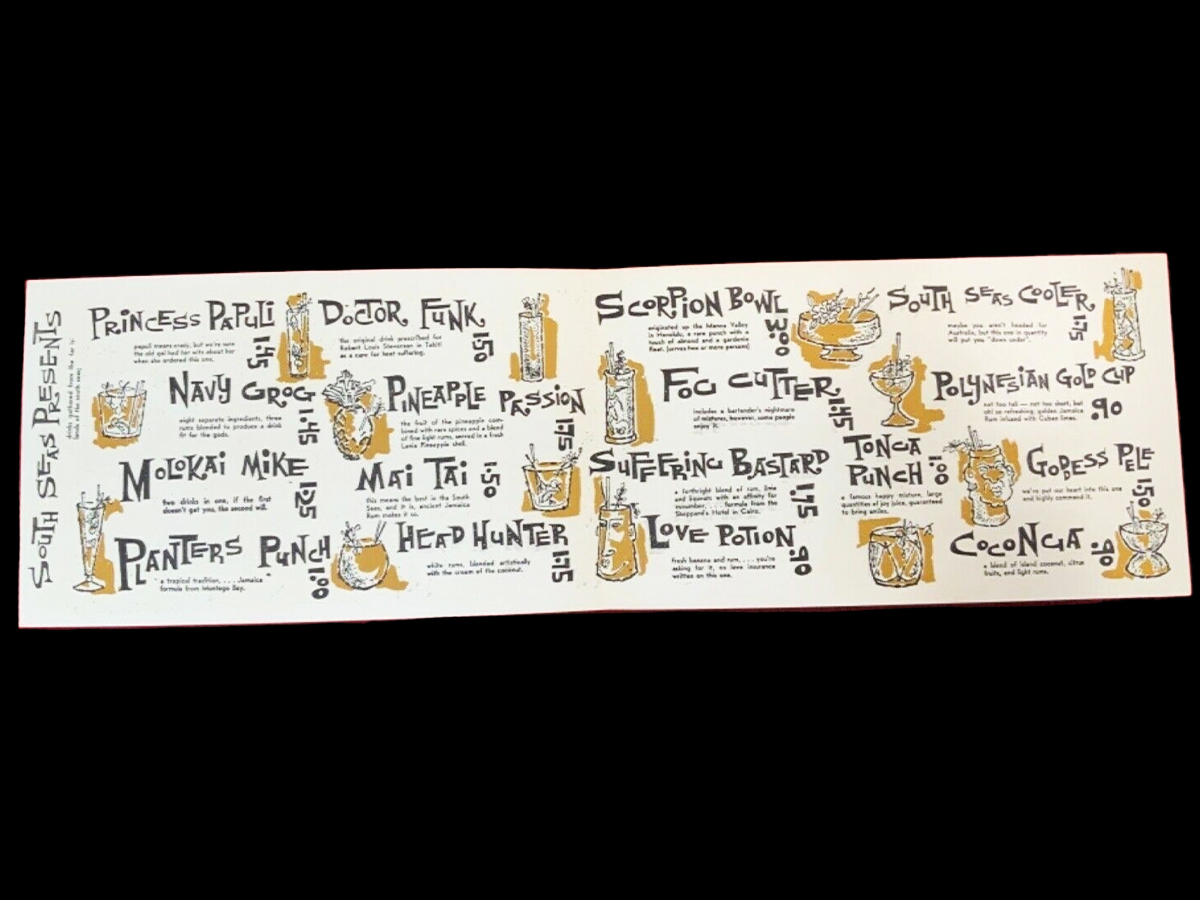 SOUTH SEAS PRESENTS
drinks gathered from the far is-
lands of the south seas:
PRINCESS PAPULI
1.45
papuli means crazy, but we're sure
the old gal had her wits about her
when she ordered this one.
DOCTOR FUNK
1.50
the original drink prescribed for
Robert Louis Stevenson in Tahiti
as a cure for heat suffering.
NAVY GROG
1.45
eight separate ingredients, three
rums blended to produce a drink
fit for the gods.
PINEAPPLE PASSION
1.75
the fruit of the pineapple com-
bined with rare spices and a blend
of fine light rums, served in a fresh
Lania Pineapple shell.
MOLOKAI MIKE
1.25
two drinks in one, if the first
doesn't get you, the second will.
MAI TAI
1.50
this means the best in the South
Seas, and it is, ancient Jamaica
Rum makes it so.
PLANTERS PUNCH
1.00
a tropical tradition, . . . . Jamaica
formula from Montego Bay.
HEAD HUNTER
1.75
white rums, blended artistically
with the cream of the coconut.
SCORPION BOWL
3.00
originated up the Manoa Valley
in Honolulu, a rare punch with a
touch of almond and a gardenia
float. (serves two or more persons)
SOUTH SEAS COOLER
1.75
maybe you aren't headed for
Australia, but this one in quantity
will put you "down under".
FOG CUTTER
1.45
includes a bartender's nightmare
of mixtures, however, some people
enjoy it.
POLYNESIAN GOLD CUP
.90
not too tall — not too short, but
oh! so refreshing, golden Jamaica
Rum infused with Cuban limes.
SUFFERING BASTARD
1.75
a forthright blend of rum, lime
and liqueurs with an affinity for
cucumber, . . . formula from the
Sheppard's Hotel in Cairo.
TONGA PUNCH
1.00
a famous happy mixture, large
quantities of joy juice, guaranteed
to bring smiles.
GODESS PELE
1.50
we've put our heart into this one
and highly commend it.
LOVE POTION
.90
fresh banana and rum, . . . . you're
asking for it, no love insurance
written on this one.
COCONGA
.90
a blend of island coconut, citrus
fruits, and light rums.